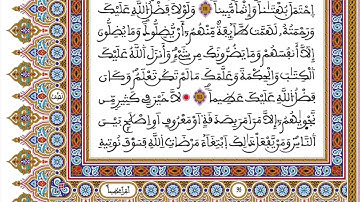 اِحْتَمَلَ بُهْتَٰناً وَإِثْماً مُّبِيناً وَلَوْلَا فَضْلُ اُ۬للَّهِ عَلَيْكَ
وَرَحْمَتُهُۥ لَهَمَّت طَّآئِفَةٌ مِّنْهُمُۥٓ أَنْ يُّضِلُّوكَ وَمَا يُضِلُّونَ
إِلَّآ أَنفُسَهُمْ وَمَا يَضُرُّونَكَ مِن شَےْءٍ وَأَنزَلَ اَ۬للَّهُ عَلَيْكَ
اَ۬لْكِتَٰبَ وَالْحِكْمَةَ وَعَلَّمَكَ مَا لَمْ تَكُن تَعْلَمُ وَكَانَ
فَضْلُ اُ۬للَّهِ عَلَيْكَ عَظِيماً لَّا خَيْرَ فِے كَثِيرٍ مِّن
نَّجْوَىٰهُمُۥٓ إِلَّا مَنَ اَمَرَ بِصَدَقَةٍ اَوْ مَعْرُوفٍ اَوِ اِصْلَٰحِۢ بَيْنَ
اَ۬لنَّاسِ وَمَنْ يَّفْعَلْ ذَٰلِكَ اَ۪بْتِغَآءَ مَرْضَاتِ اِ۬للَّهِ فَسَوْفَ نُوتِيهِ